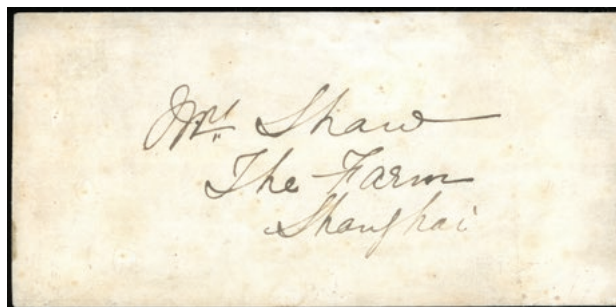 Mrs Shaw
The Farm
Shanghai